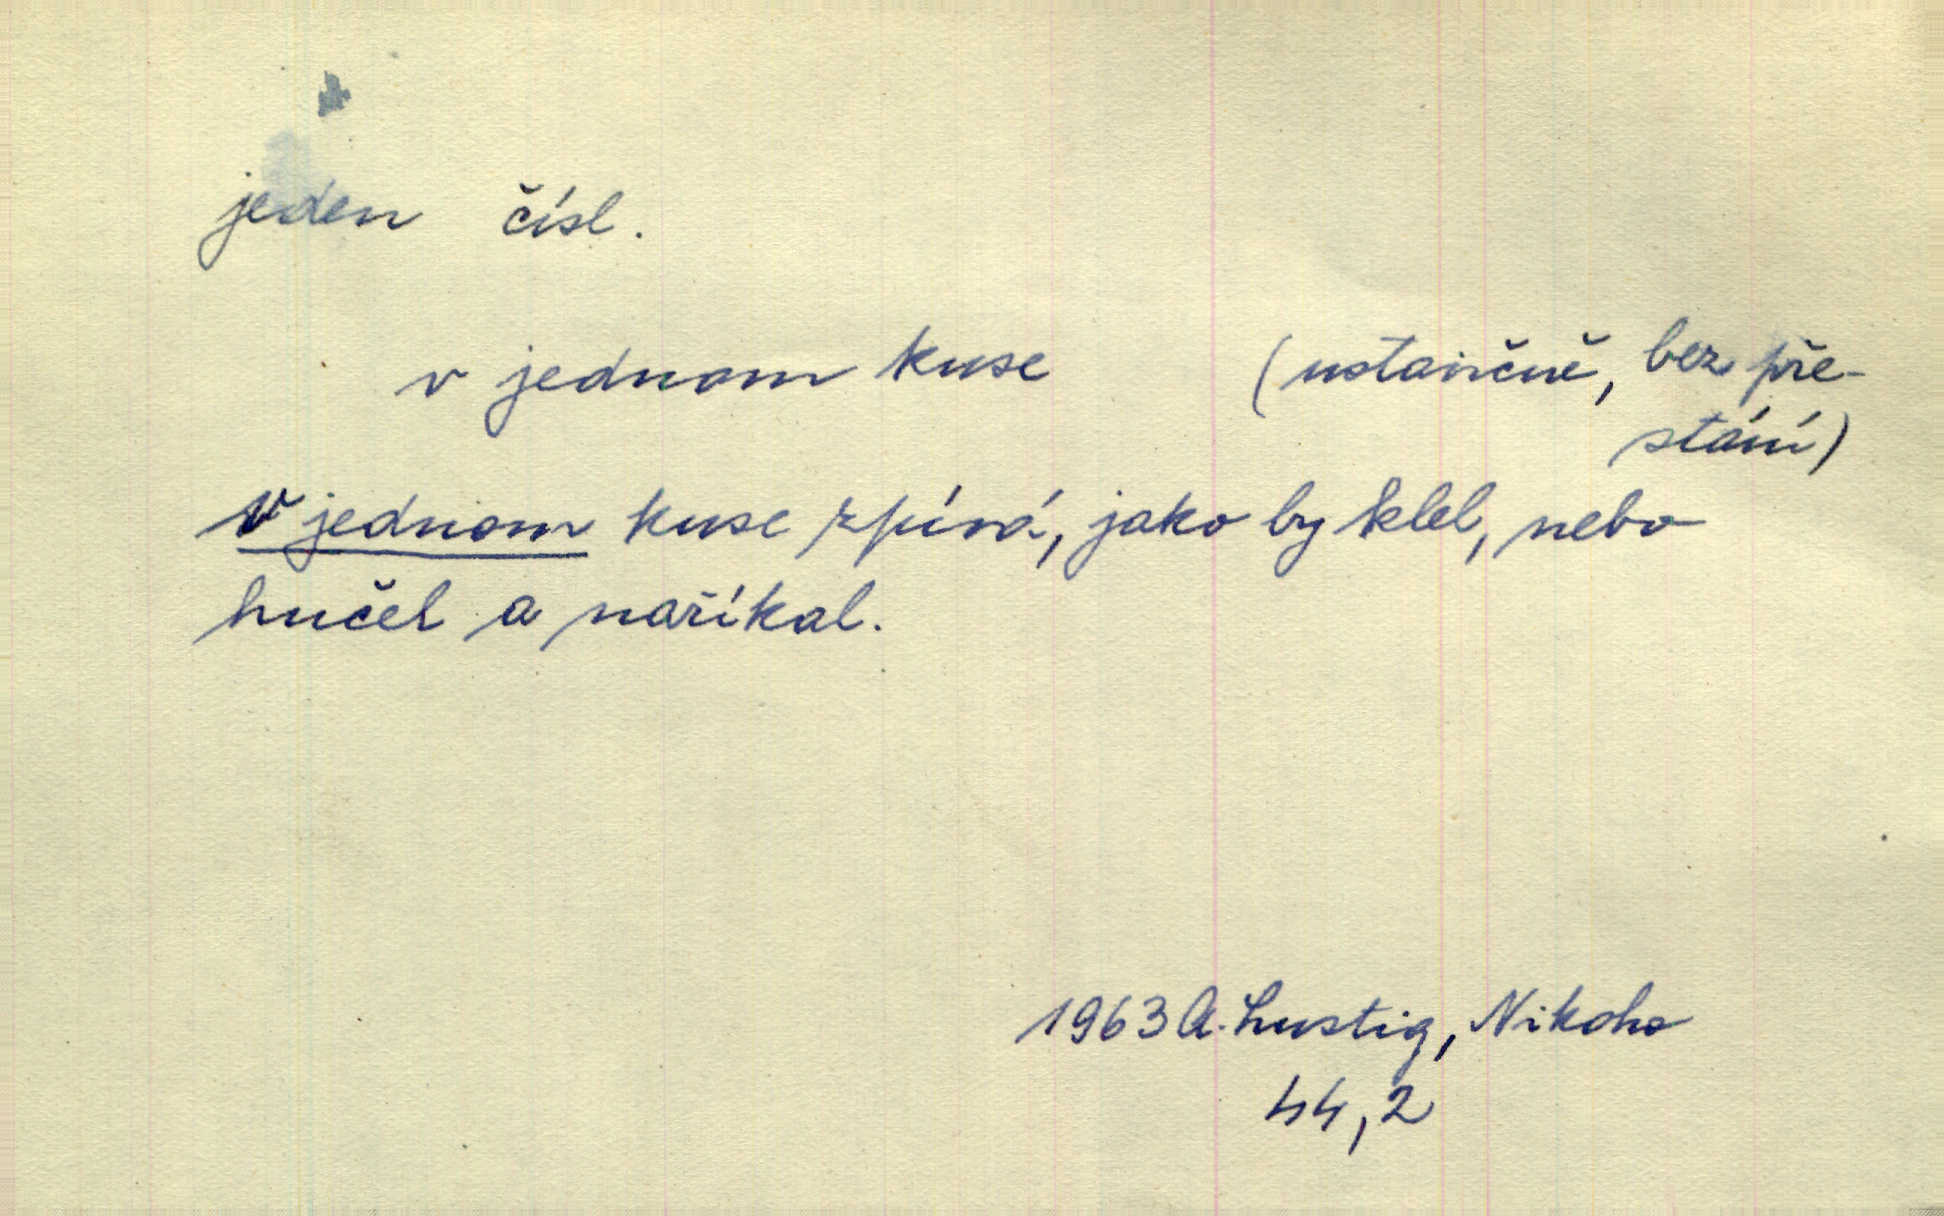 jeden čísl.
v jednom kuse (ustavičně, bez pře-
stání)
V jednom kuse zpívá, jako by klel, nebo
hučel a naříkal.
1963 A. Lustig, Nikoho
44,2